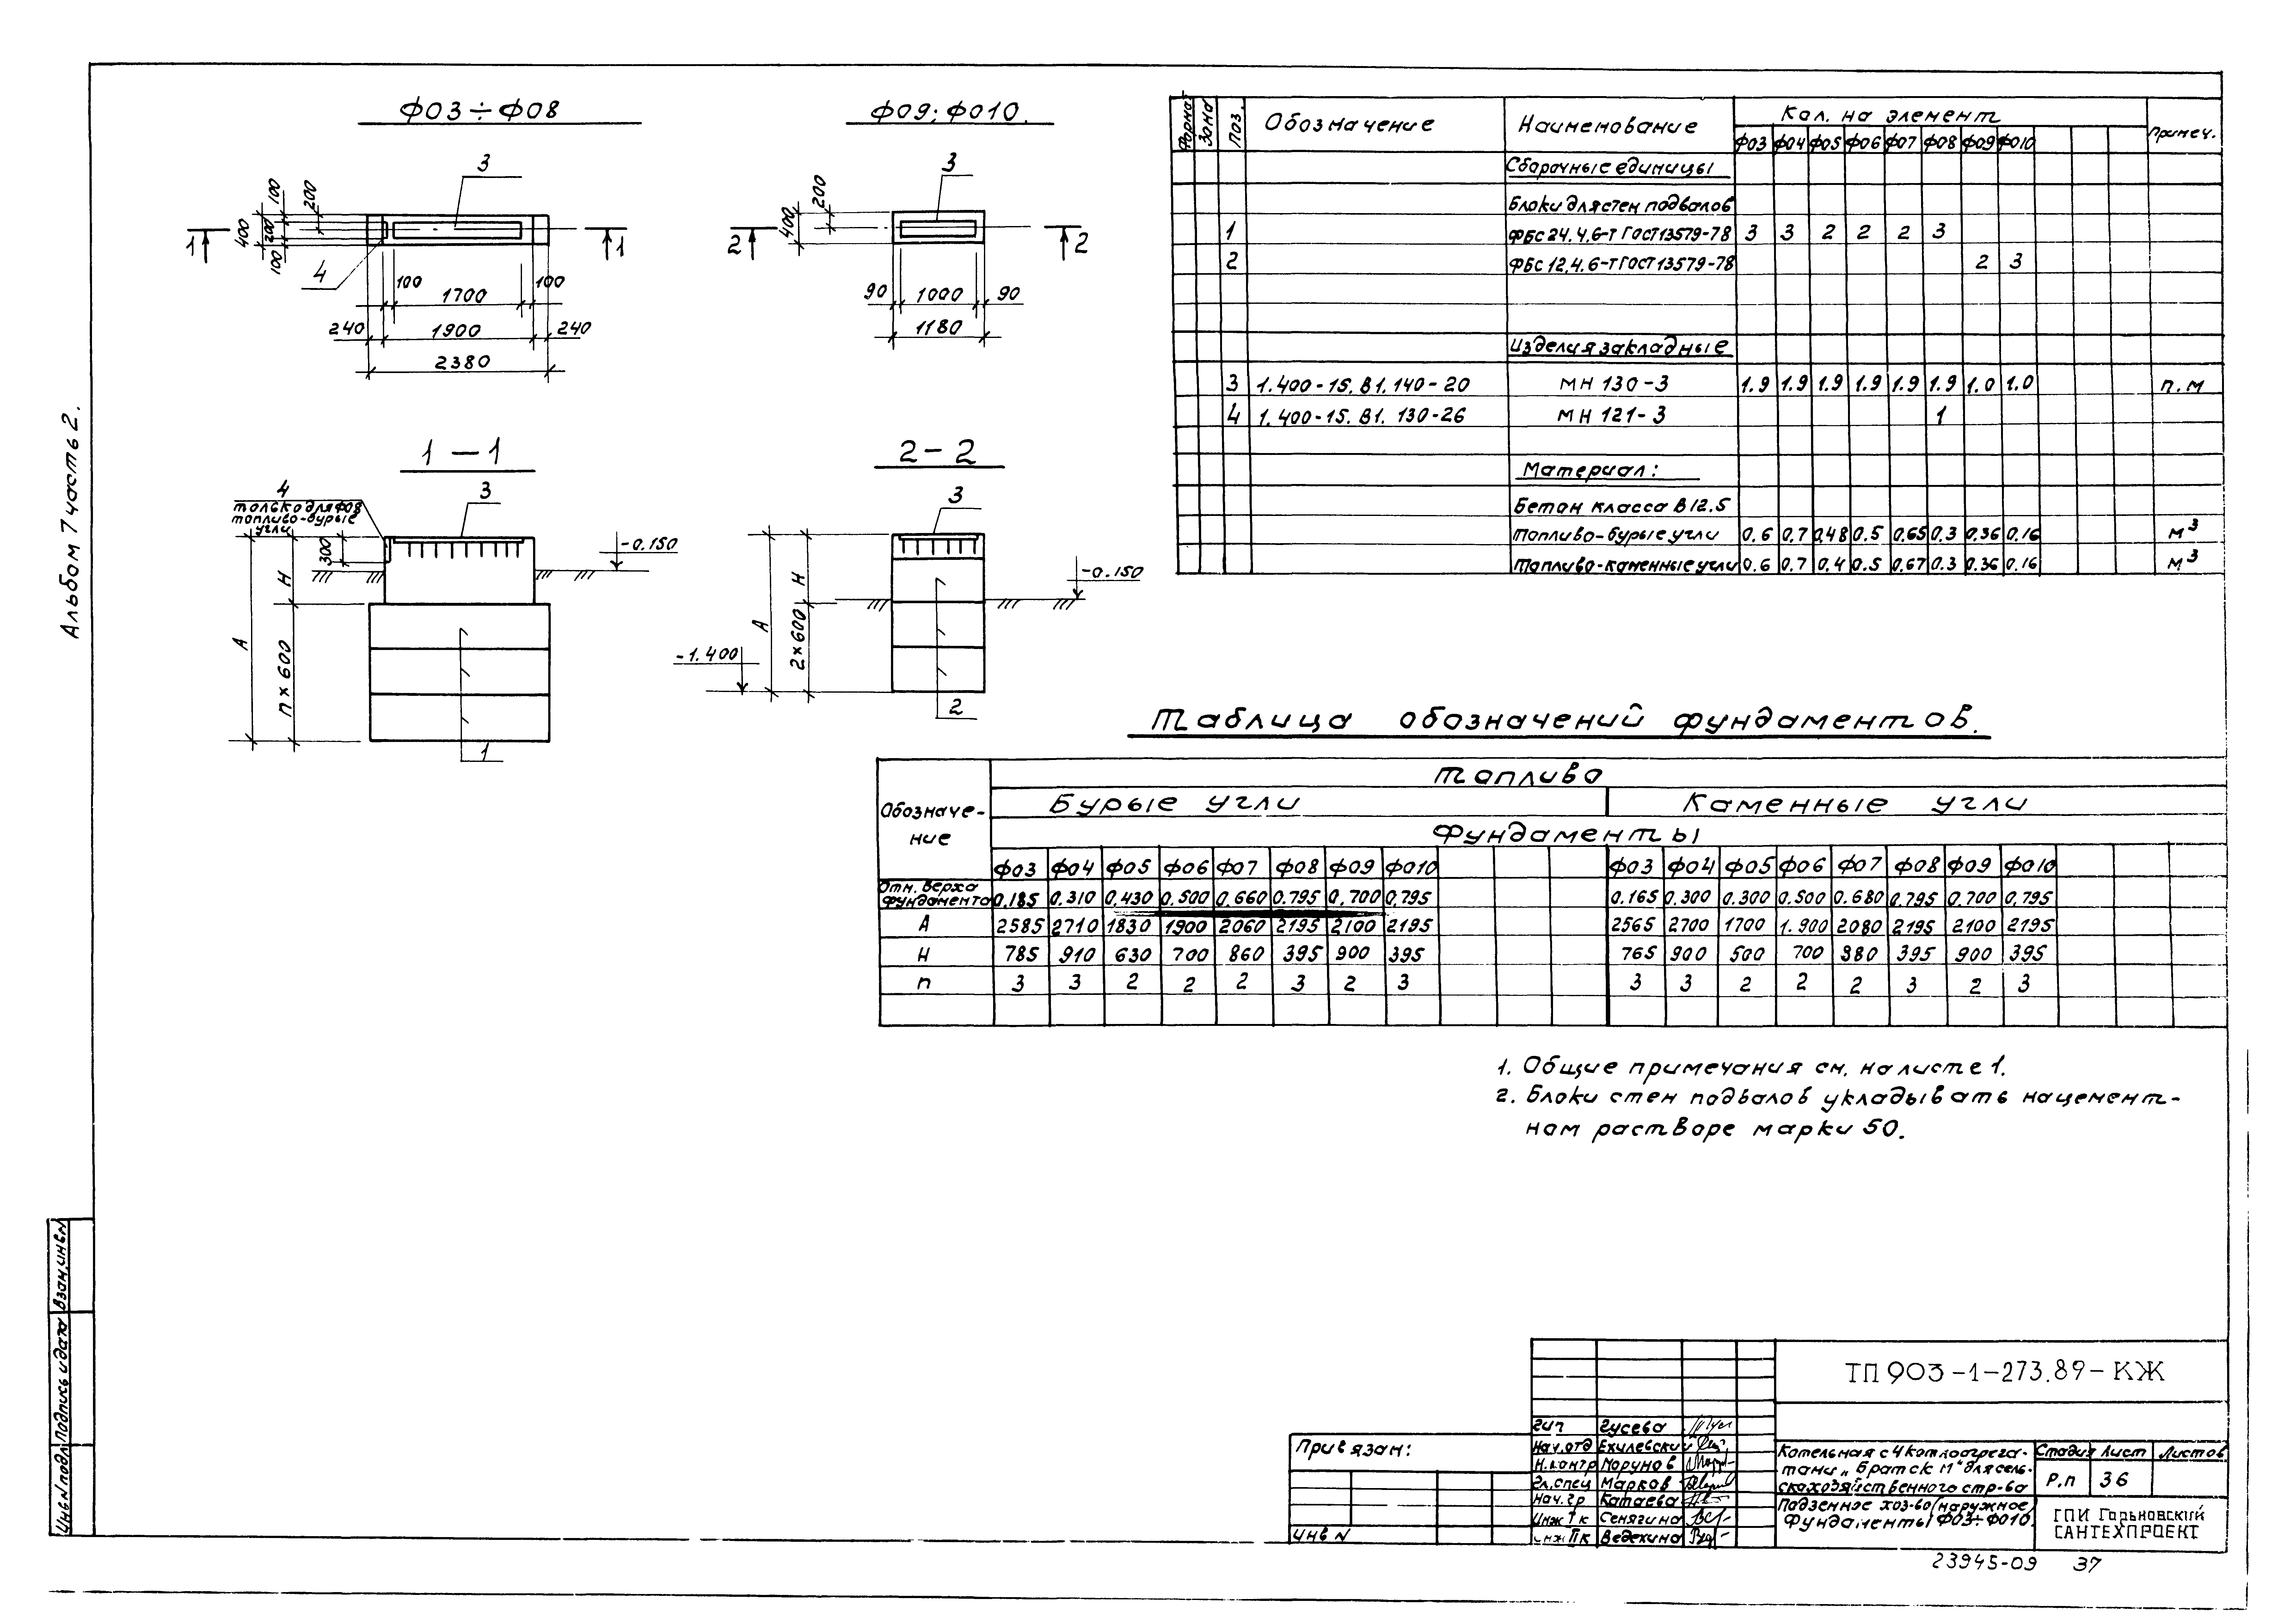 Альбом 7 часть 2.
Ф03÷Ф08
3
1 1
400 100 200 100 200
4
100 1700 100
240 1900 240
2380
Ф09; Ф010.
3
2 2
400 200
90 1000 90
1180
1–1
4
только для Ф08
топливо-бурые
угли
3
300
-0.150
А
Н
n×600
1
2–2
3
-0.150
А
Н
2×600
-1.400
2
Формат Зона Поз. Обозначение Наименование Кол. на элемент Примеч.
Ф03 Ф04 Ф05 Ф06 Ф07 Ф08 Ф09 Ф010
Сборочные единицы
Блоки для стен подвалов
1 ФБС 24.4.6-т ГОСТ 13579-78 3 3 2 2 2 3
2 ФБС 12.4.6-т ГОСТ 13579-78 2 3
Изделия закладные
3 1.400-15. В1. 140-20 МН 130-3 1.9 1.9 1.9 1.9 1.9 1.9 1.0 1.0 п.м
4 1.400-15. В1. 130-26 МН 121-3 1
Материал:
Бетон класса В12.5
Топливо-бурые угли 0.6 0.7 0.48 0.5 0.65 0.3 0.36 0.16 м3
Топливо-каменные угли 0.6 0.7 0.4 0.5 0.67 0.3 0.36 0.16 м3
Таблица обозначений фундаментов.
Обозначе-
ние
Топливо
Бурые угли Каменные угли
Фундаменты
Ф03 Ф04 Ф05 Ф06 Ф07 Ф08 Ф09 Ф010 Ф03 Ф04 Ф05 Ф06 Ф07 Ф08 Ф09 Ф010
Отн. верха
фундамента 0.185 0.310 0.430 0.500 0.660 0.795 0.700 0.795 0.165 0.300 0.300 0.500 0.680 0.795 0.700 0.795
А 2585 2710 1830 1900 2060 2195 2100 2195 2565 2700 1700 1.900 2080 2195 2100 2195
Н 785 910 630 700 860 395 900 395 765 900 500 700 880 395 900 395
n 3 3 2 2 2 3 2 3 3 3 2 2 2 3 2 3
1. Общие примечания см. на листе 1.
2. Блоки стен подвалов укладывать на цемент-
ном растворе марки 50.
Инв N подл. Подпись и дата Взам. инв. N
Привязан:
Инв N
ТП 903-1-273.89-КЖ
ГИП Гусева
Нач.отд Ехилевский
Н.контр Морунов
Гл.спец Марков
Нач.гр Катаева
Инж I к Сенягина
инж II к Ведехина
Котельная с 4 котлоагрега-
тами „Братск М" для сель-
скохозяйственного стр-ва
Стадия Лист Листов
Р.п 36
Подземное хоз-во (наружное)
Фундаменты Ф03÷Ф010.
ГПИ Горьковский
САНТЕХПРОЕКТ
23945-09 37